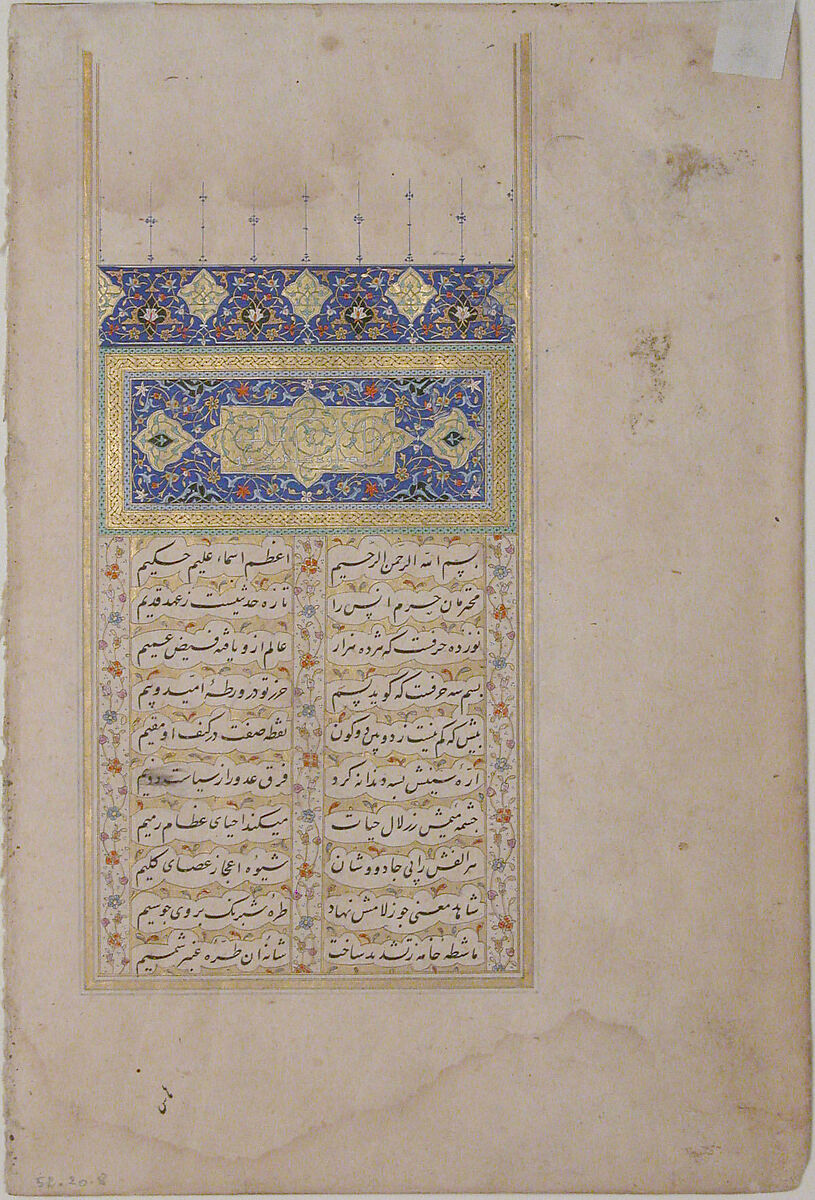 بسم الله الرحمن الرحیم اعظم اسماء علیم حکیم
محترمان حرم انس را تازه حدیثیست ز عهد قدیم
نوزده حرفست که هژده هزار عالم ازو یافته فیض عمیم
بسم سه حرفست که گوید بسم حرز تو در ورطهٔ امید و بیم
بیش که کم نیست ز دو کون نقطه صفت در کنف او مقیم
ارهٔ سینش بسه دندانه کرد فرق عدو را ز سیاست دو نیم
چشمه میمش ز زلال حیات میکند احیای عظام رمیم
هر الفش را پی جادووشان شیوه اعجاز عصای کلیم
شاهد معنی چو ز لامش نهاد طره شبرنک بروی چو سیم
ماشطه خامه ز تشدید ساخت شانه آن طره عنبر شمیم
52.20.8